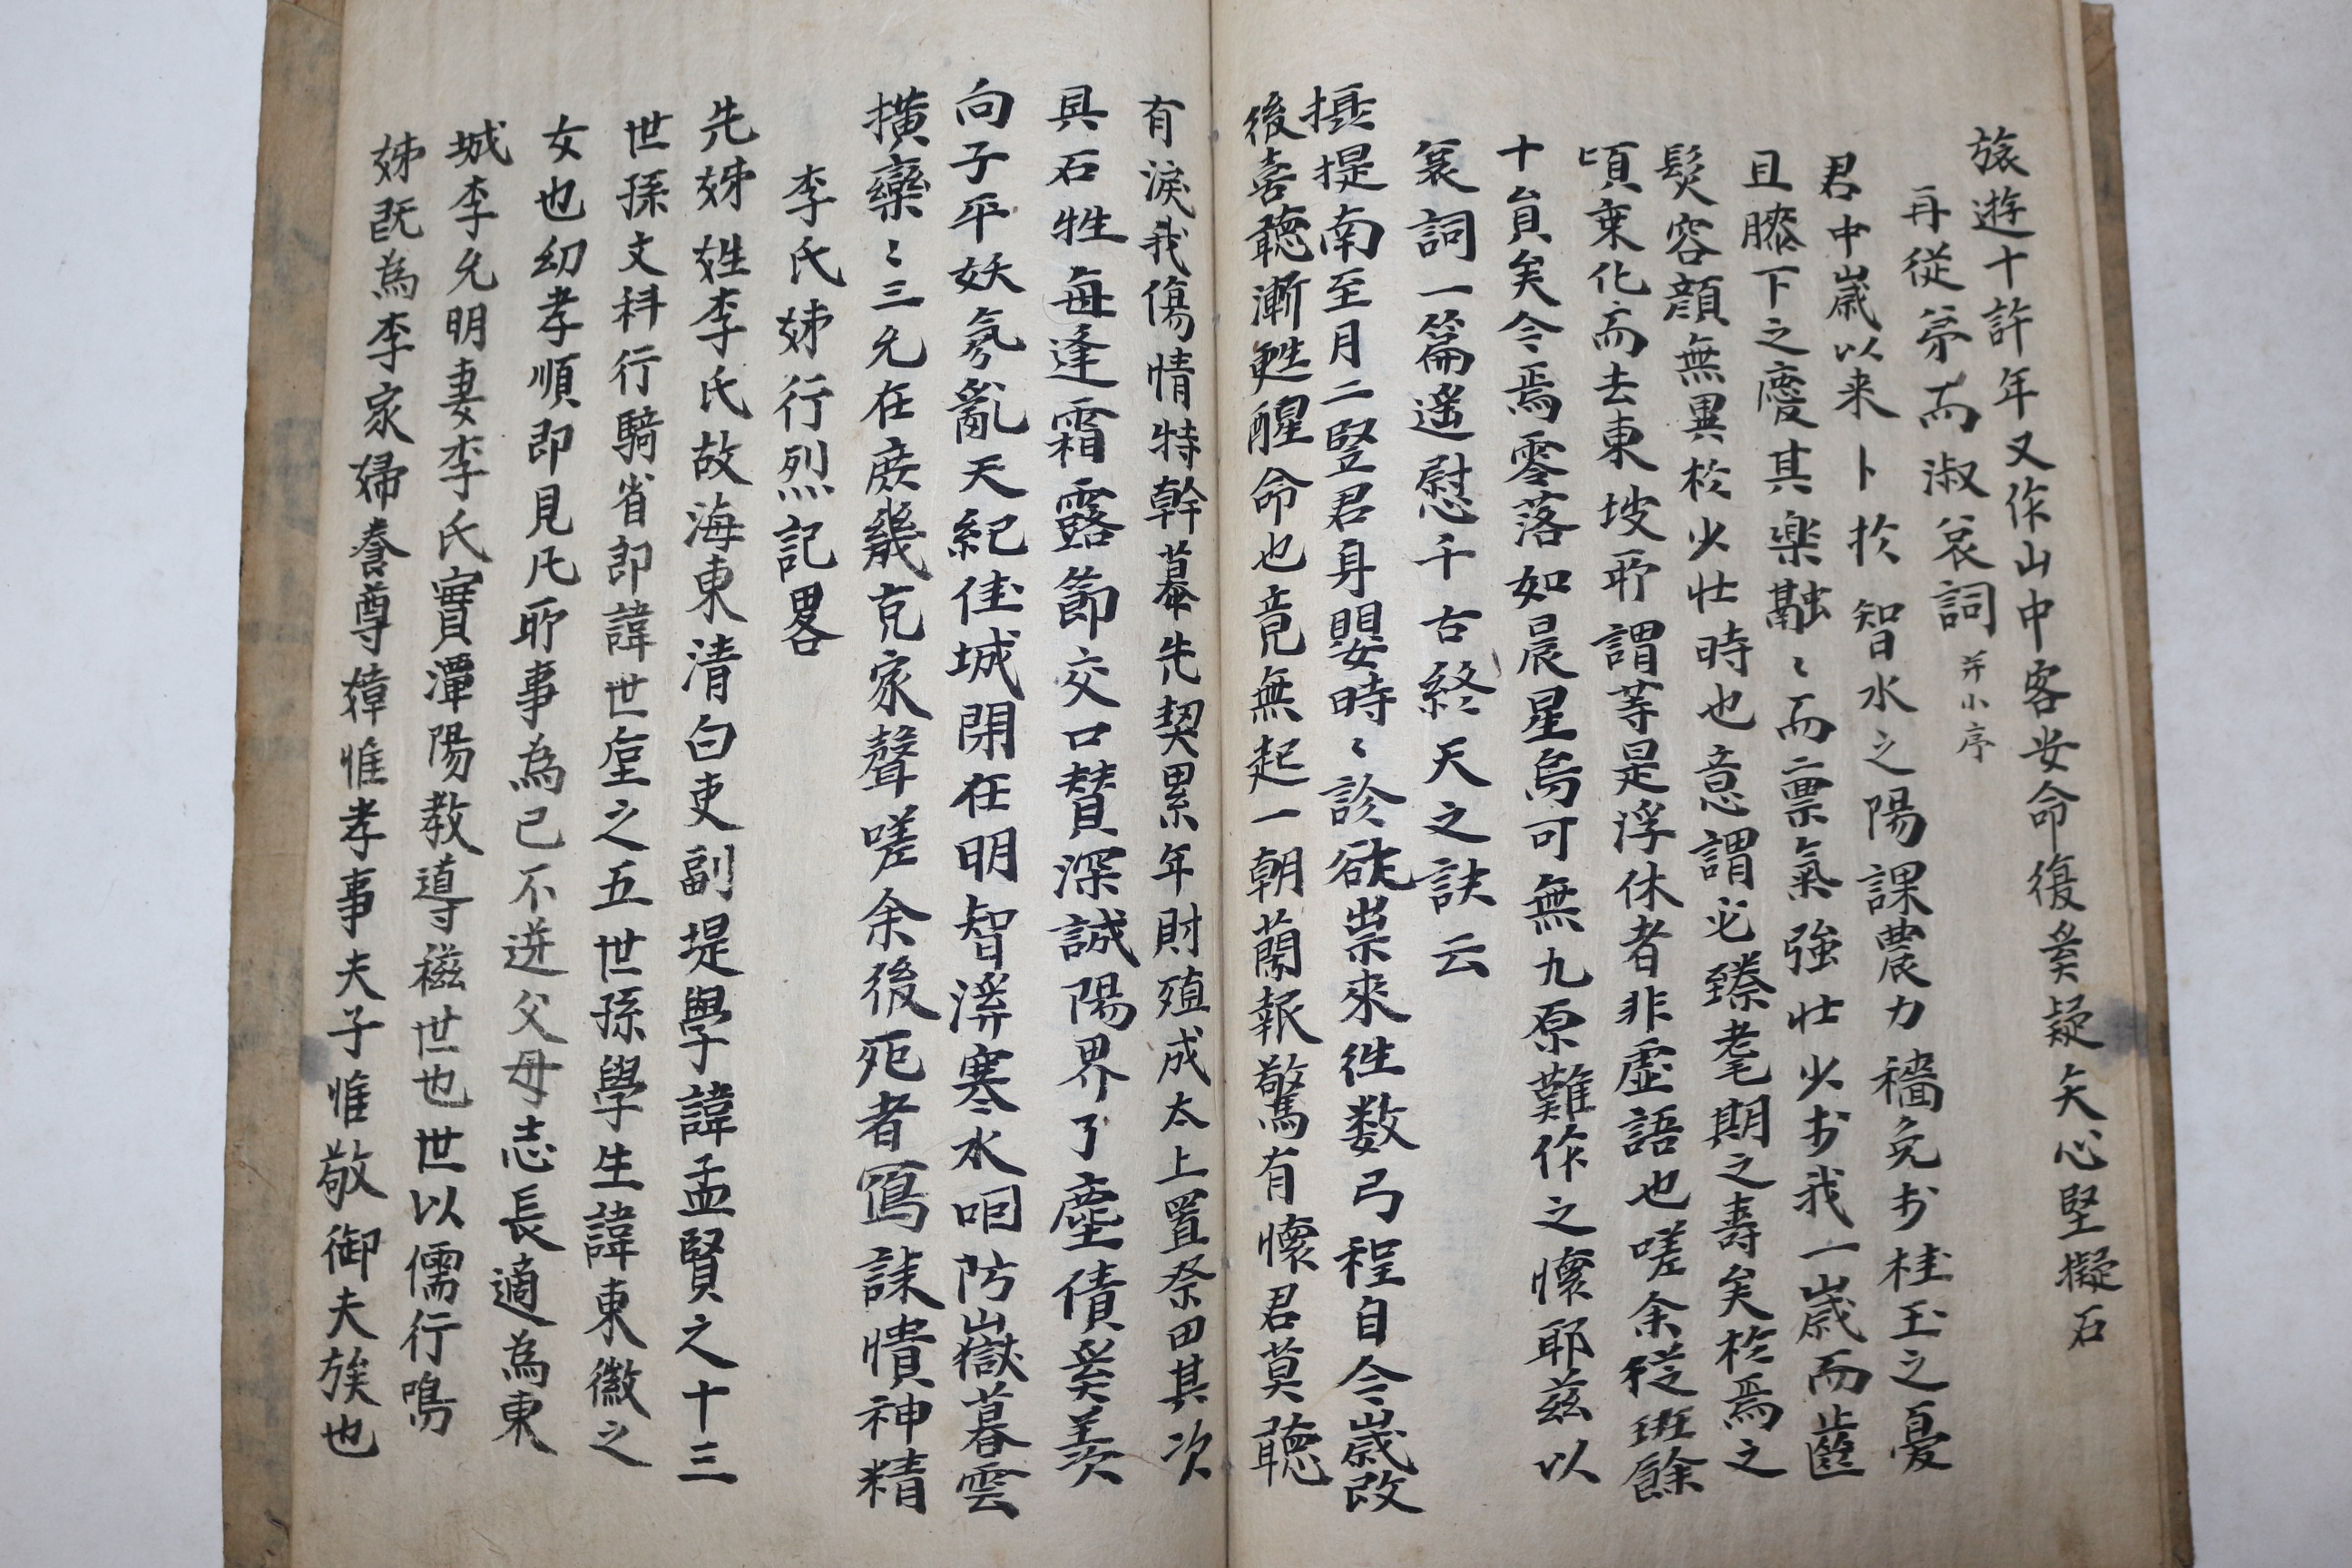 旅遊十許年又作山中客安命復奚疑矢心堅擬石
再從弟而淑哀詞 并小序
君中歲以来卜扵智水之陽課農力穡免扵桂玉之憂
且膝下之慶其樂融〻而稟氣強壯少扵我一歲而齒
髮容顔無異扵少壯時也意謂必臻耄期之壽矣扵焉之
頃乗化而去東坡所謂等是浮休者非虛語也嗟余從班餘
十員矣今焉零落如晨星烏可無九原難作之懷耶玆以
哀詞一篇遥慰千古終天之訣云
攝提南至月二竪君身嬰時〻診欲祟來徃数弓程自今歲改
後喜聽漸甦醒命也竟無起一朝蘭報驚有懷君莫聽
有淚我傷情特幹墓先契累年財殖成太上置祭田其次
具石牲每逢霜露節交口賛深誠陽界了塵債奚羨
向子平妖氛亂天紀佳城閉在明智濞寒水咽防嶽暮雲
撗欒〻三允在庶幾克家聲嗟余後死者寫誄憒神精
李氏姊行烈記畧
先姊姓李氏故海東清白吏副提學諱孟賢之十三
世孫文科行騎省郎諱世垕之五世孫學生諱東徽之
女也幼孝順即見凡所事為已不迸父母志長適為東
城李允明妻李氏實潭陽教導禌世也世以儒行鳴
姊既為李家婦養尊嫜惟孝事夫子惟敬御夫族也